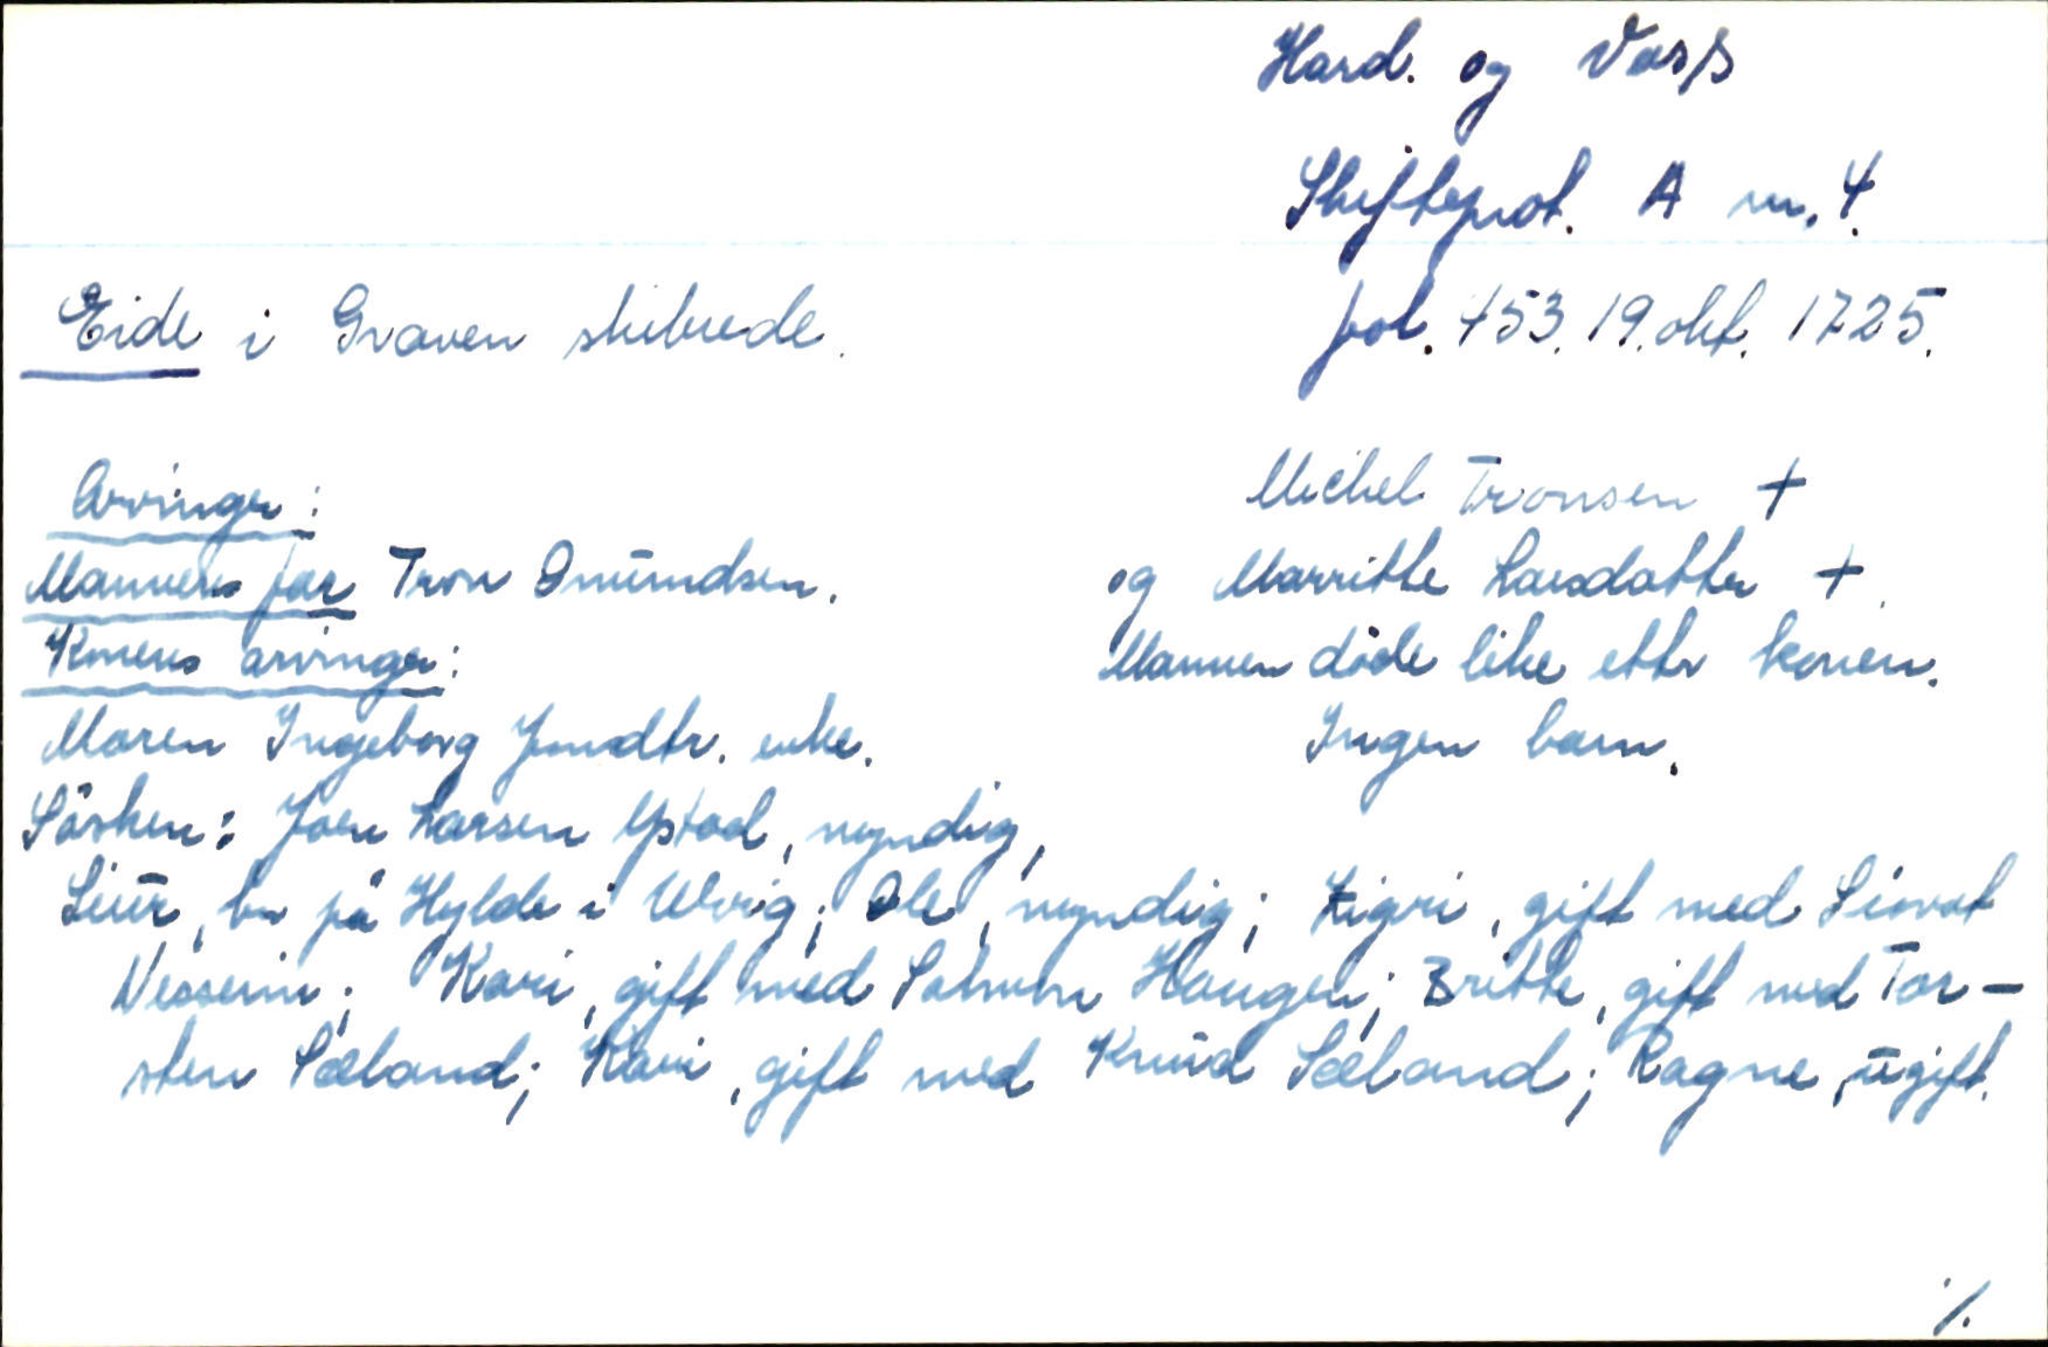 Hard. og Voss
Skifteprot. A nr. 4.
Eide i Graven skibrede.
fol. 453. 19. okt. 1725.
Arvinger:
Mannens far Tron Omundsen.
Konens arvinger:
Maren Ingeborg Jondtr. enke.
Michel Tronsen +
og Marritte Larsdatter +.
Mannen døde like etter konen.
Ingen barn.
Søsken: Joen Larsen Ystad, myndig,
Siur, bor på Hylde i Ulvig; Ole, myndig; Zigri, gift med Siovat
Nesseim; Kari, gift med Samson Haugen; Britte, gift med Tor-
sten Sæland; Kari, gift med Knud Sæland; Ragne, ugift.
./.